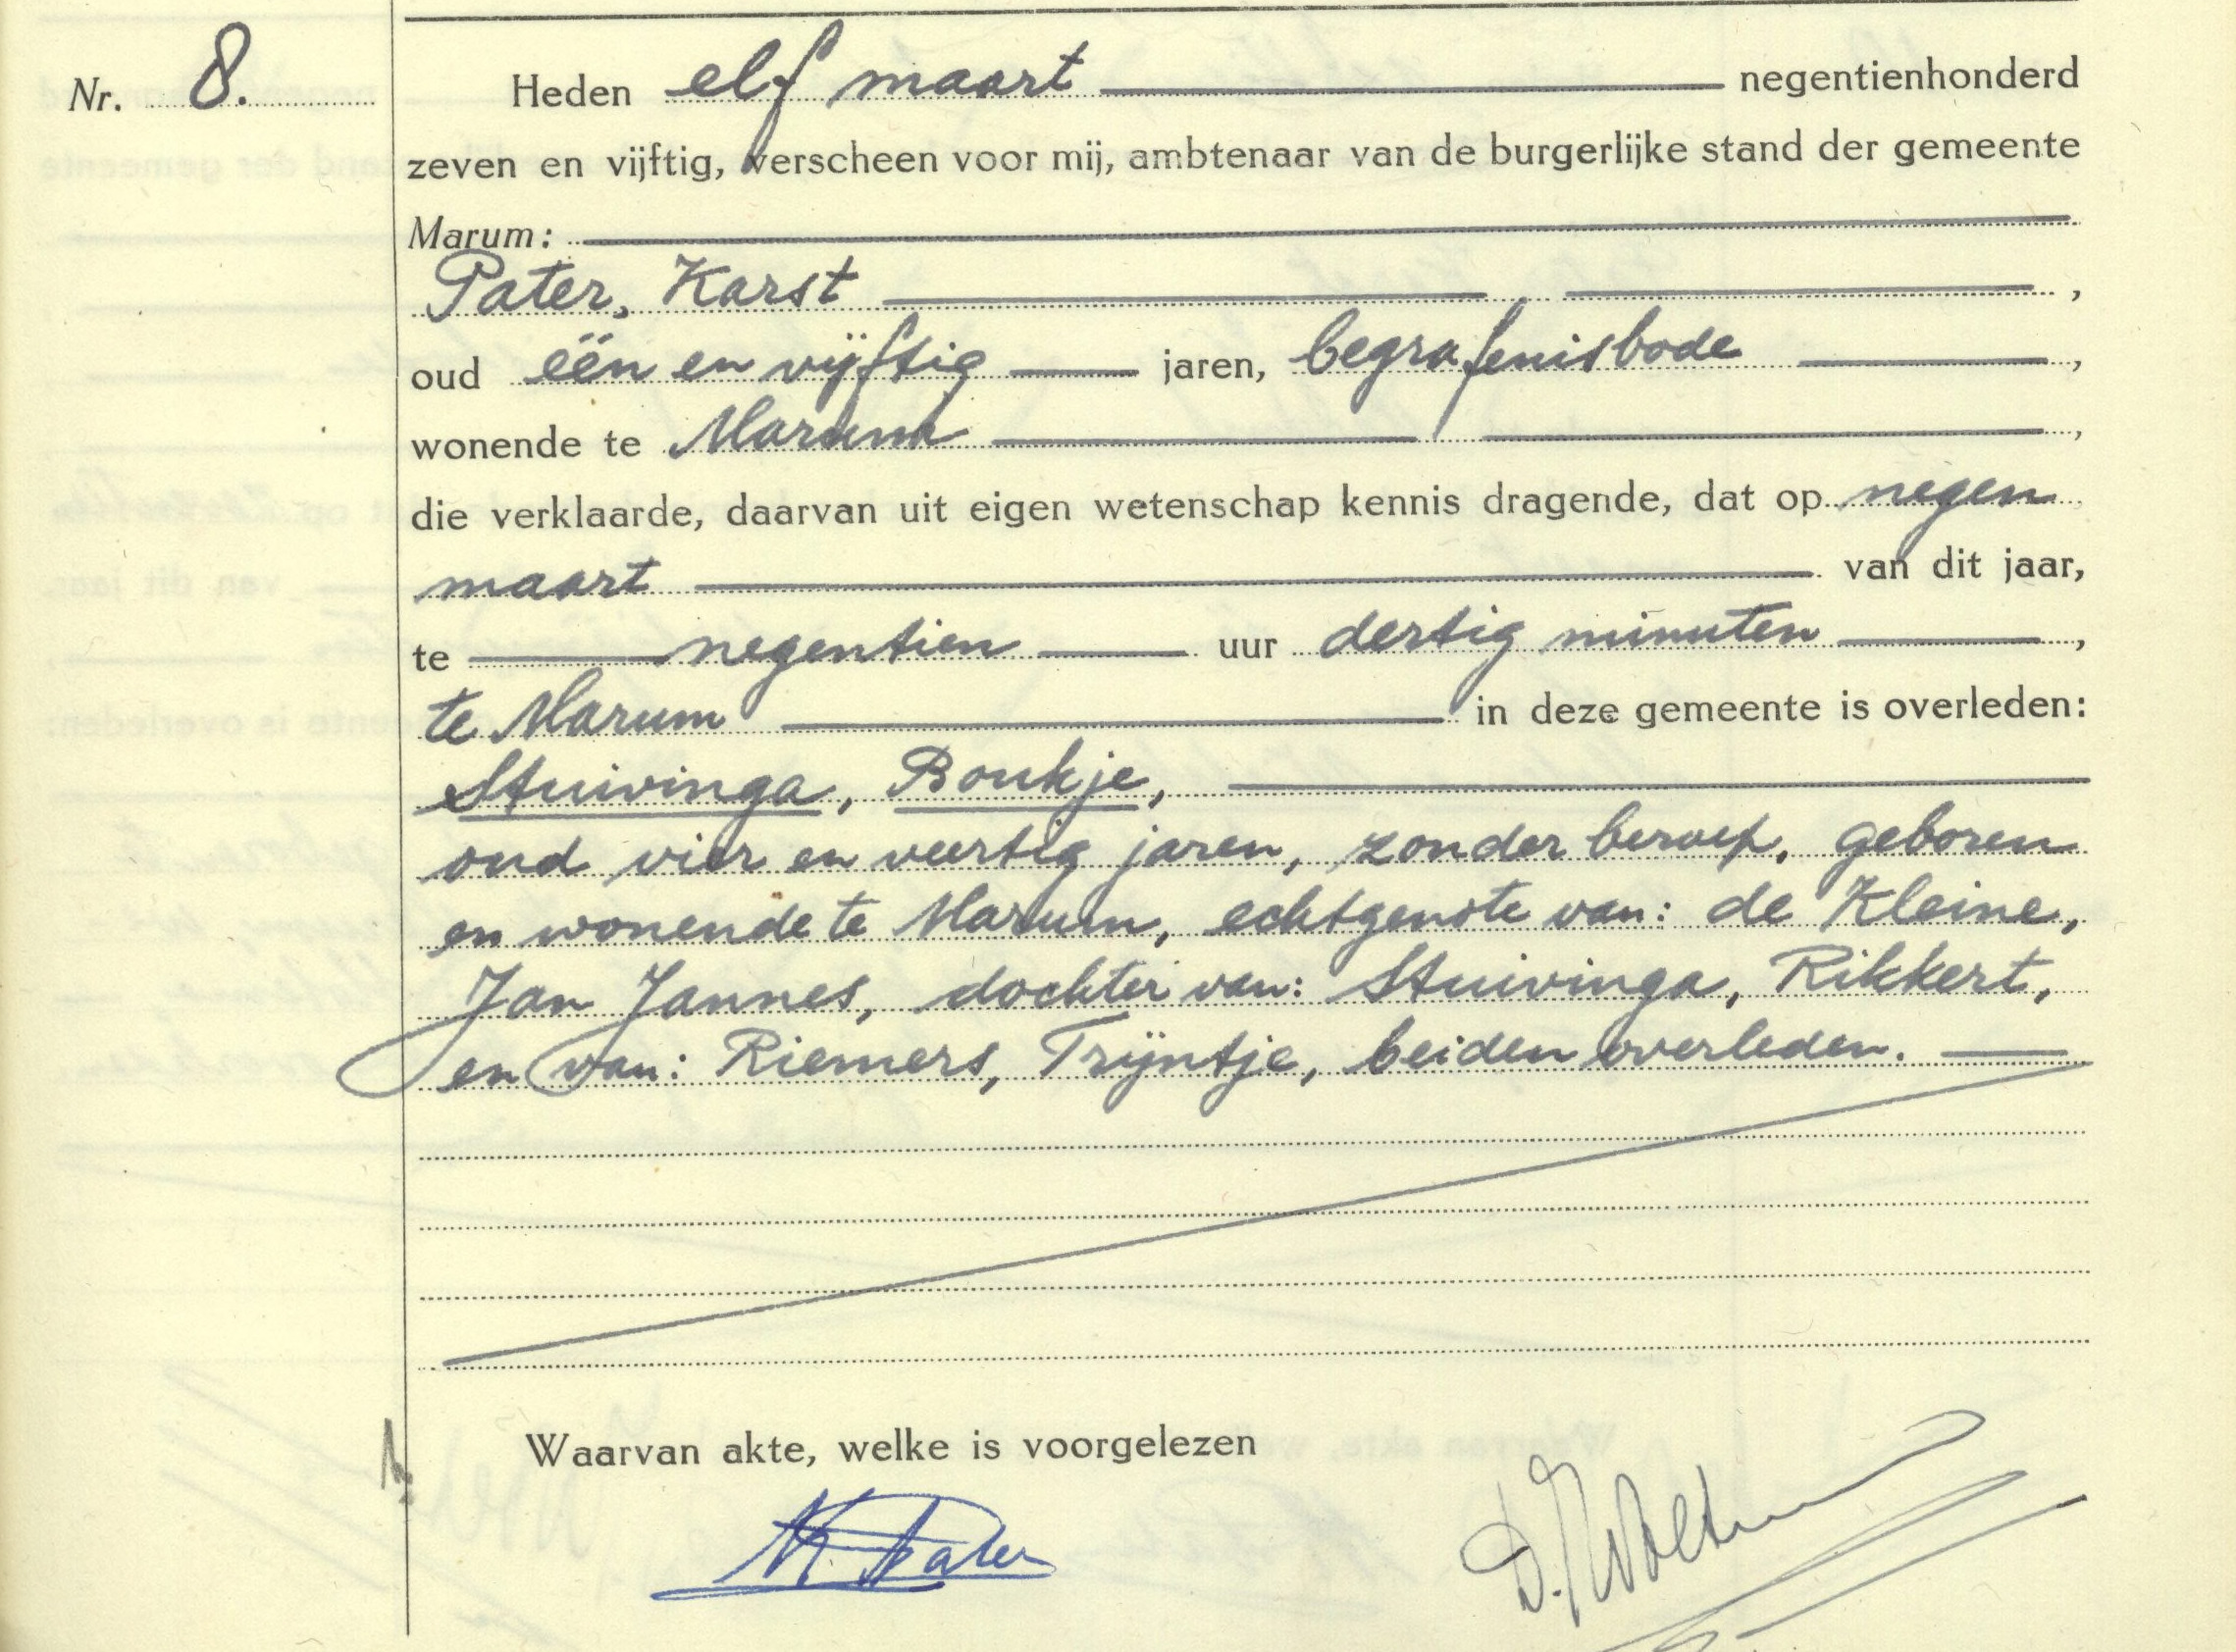 Nr. 8.
Heden elf maart negentienhonderd
zeven en vijftig, verscheen voor mij, ambtenaar van de burgerlijke stand der gemeente
Marum:
Pater, Karst ,
oud één en vijftig jaren, begrafenisbode ,
wonende te Marum ,
die verklaarde, daarvan uit eigen wetenschap kennis dragende, dat op negen
maart van dit jaar,
te negentien uur dertig minuten ,
te Marum in deze gemeente is overleden:
Stuivinga, Boukje,
oud vier en veertig jaren, zonder beroep, geboren
en wonende te Marum, echtgenote van: de Kleine,
Jan Jannes, dochter van: Stuivinga, Rikkert,
en van: Riemers, Trijntje, beiden overleden.
Waarvan akte, welke is voorgelezen
K. Pater